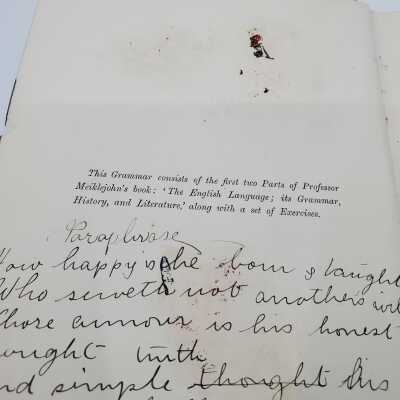 This Grammar consists of the first two Parts of Professor
Meiklejohn's book: 'The English Language; its Grammar,
History, and Literature,' along with a set of Exercises.
Paraphrase
How happy is he born & taught
Who serveth not another's will
Whose armour is his honest
thought
and simple truth his